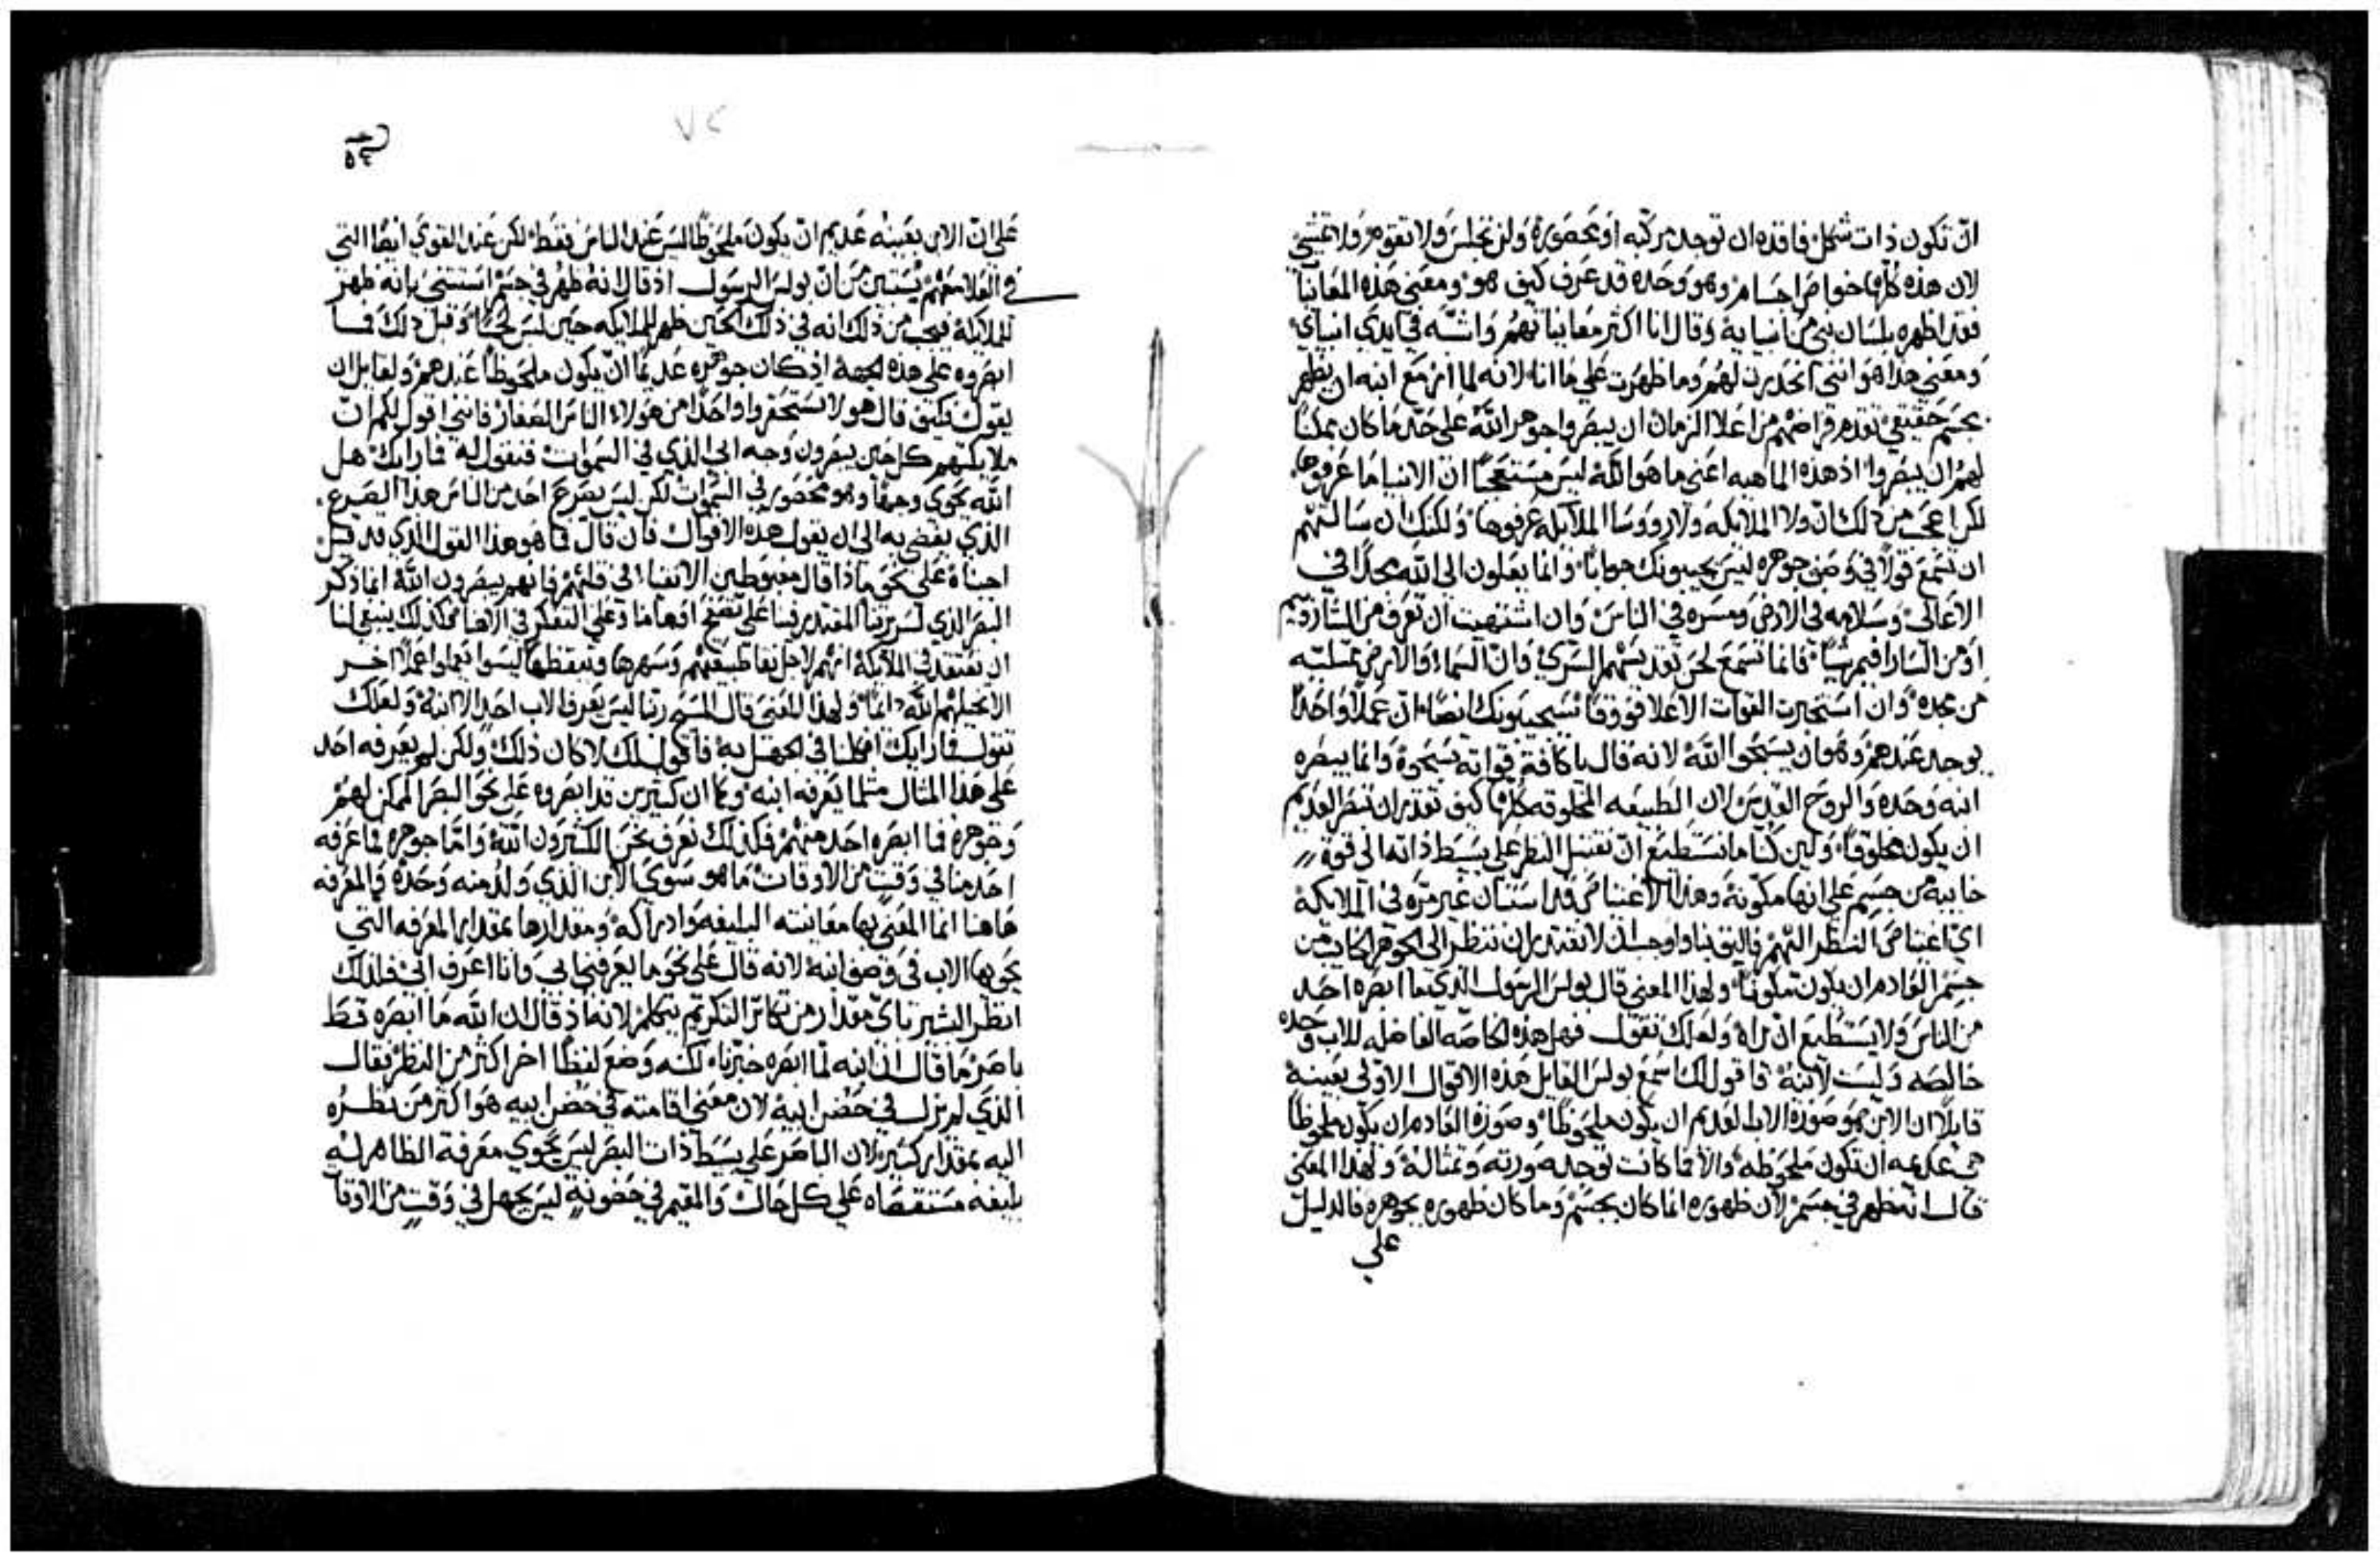 ان تكون ذات شكل فاقده ان توجد مركبه او محصوره ولن تجلس ولا تقوم ولا تمشي
لان هذه كلها خواص اجسام وهو وحده قد عرف كيف هو ومعني هذه المعانيا
فقد اظهره بلسان نبي من انبيايه وقال انا اكثر معانياتهم واشبه في ايدي انبياي
ومعني هذا هو انني انحدرت لهم وما ظهرت علي ما انا لانه لما ازمع ابنه ان يظهر
بجسم حقيقي تقدم فراضهم من اعلا الزمان ان يبصروا جوهر الله علي حد ما كان يمكنا
لهم ان يبصروا اذ هذه الماهيه اعني ما هو الله ليس مستعجبا ان الانبيا ما عرفوها
لكن اعجب من ذلك ان ولا الملايكه ولا رووسا الملايكه عرفوها ولكنك ان سالتهم
ان تسمع قولا في وصف جوهره ليس يجيبونك جوابا وانما يعلون الي الله مجدا في
الاعالي وسلامه في الارض ومسره في الناس وان اشتهيت ان تعرف من الشاروبيم
او من السارافيم شيا فانما تسمع لحن تقديسهم السري وان السماء والارض ممتليه
من مجده وان استخبرت القوات الاعلا فوقا تستجيبونك ايضا ان عملا واحدا
يوجد عندهم وهو ان يسبحوا الله لانه قال يا كافة قواته سبحوه وانما يبصره
ابنه وحده والروح القدس لان الطبيعه المخلوقه كلها كيف تقدر ان تنظر العديم
ان يكون مخلوقا ولين كنا ما نستطيع ان نقتبل النظر علي بسيط ذاته الي قوة
خاييه من جسم علي انها مكونة وهذا الاعتياص قد استبان غير مره في الملايكة
اي اعتياص النظر اليهم فاليق بنا واوجب ان لا نقتدر ان ننظر الي الجوهر الخايب من
جسم القادم ان يكون مكونا ولهذا المعني قال بولس الرسول الذي ما ابصره احد
من الناس ولا يستطيع ان يراه ولعلك تقول فهل هذه الخاصه الفاضله للاب وحده
خالصه وليست لابنه فاقول لك اسمع بولس القايل هذه الاقوال الاولي بعينه
قايلا ان الابن هو صورة الاب العديم ان يكون ملحوظا وصورة القادم ان يكون ملحوظا
هي عديمه ان تكون ملحوظه والا فما كانت توجد صورته وتمثاله ولهذا المعني
قال انه ظهر في جسم لان ظهوره انما كان بجسم وما كان ظهوره بجوهره فالدليل
علي
٧٢
علي ان الابن بعينه عديم ان يكون ملحوظا ليس عند الناس فقط لكن عند القوي ايضا التي
في العلا منهم يستبين من ان بولس الرسول اذ قال انه ظهر في جسم استثني بانه ظهر
للملايكة فيجب من ذلك انه في ذلك الحين ظهر للملايكه حين لبس لحما وقبل ذلك فما
ابصروه علي هذه الجهة اذ كان جوهره عديما ان يكون ملحوظا عندهم ولقايل ان
يقول فكيف قال هو لا تستحقروا واحدا من هولاء الناس الصغار فانني اقول لكم ان
ملايكتهم كل حين يبصرون وجه ابي الذي في السموات فنقول له فارايك هل
الله يحوي وجها وهو محصور في السموات لكن ليس يصرع احد من الناس هذا الصرع
الذي يفضي به الي ان يقول هذه الاقوال فان قال فما هو هذا القول الذي قد قيل
اجبناه علي نحو ماذا قال مغبوطين الانقياء في قلبهم فانهم يبصرون الله انما ذكر
البصر الذي لسريرتنا المقتدر فينا علي تصفح اوهامنا وعلي التفكر في الاهنا فكذلك ينبغي لنا
ان نعتقد في الملايكة انهم لاجل نقا طبيعتهم وسهرها وتيقظها ليسوا يعملوا عملا اخر
الا تخيلهم الله دايما ولهذا المعني قال المسيح ربنا ليس يعرف الاب احد الا ابنه ولعلك
تقول فارايك افكلنا في الجهل به فاقول لك لا كان ذلك ولكن لم يعرفه احد
علي هذا المثال مثلما يعرفه ابنه وكما ان كثيرين قد ابصروه علي نحو البصر الممكن لهم
وجوهره فما ابصره احد منهم فكذلك نعرف نحن الكثيرون الله واما جوهره فما عرفه
احد منا في وقت من الاوقات ما هو سوي الابن الذي ولد منه وحده والمعرفه
هاهنا انما المعني بها معاينته البليغه وادراكه ومقدارها بمقدار المعرفه التي
يحويها الاب في وصف ابنه لانه قال علي نحو ما يعرفني ابي وانا اعرف ابي فلذلك
انظر البشير باي مقدار من تكاثر التكريم يتكلم لانه اذ قال ان الله ما ابصره قط
باصر ما قال ان ابنه لما ابصره خبرنا لكنه وضع لفظا اخر اكثر من النظر فقال
الذي لم يزل في حضن ابيه لان معني اقامته في حضن ابيه هو اكثر من نظره
اليه بمقدار كثير لان الباصر علي بسيط ذات البصر ليس يحوي معرفة الظاهر له
بليغه مستقصاه علي كل حال والمقيم في حضونه ليس يجهل في وقت من الاوقا